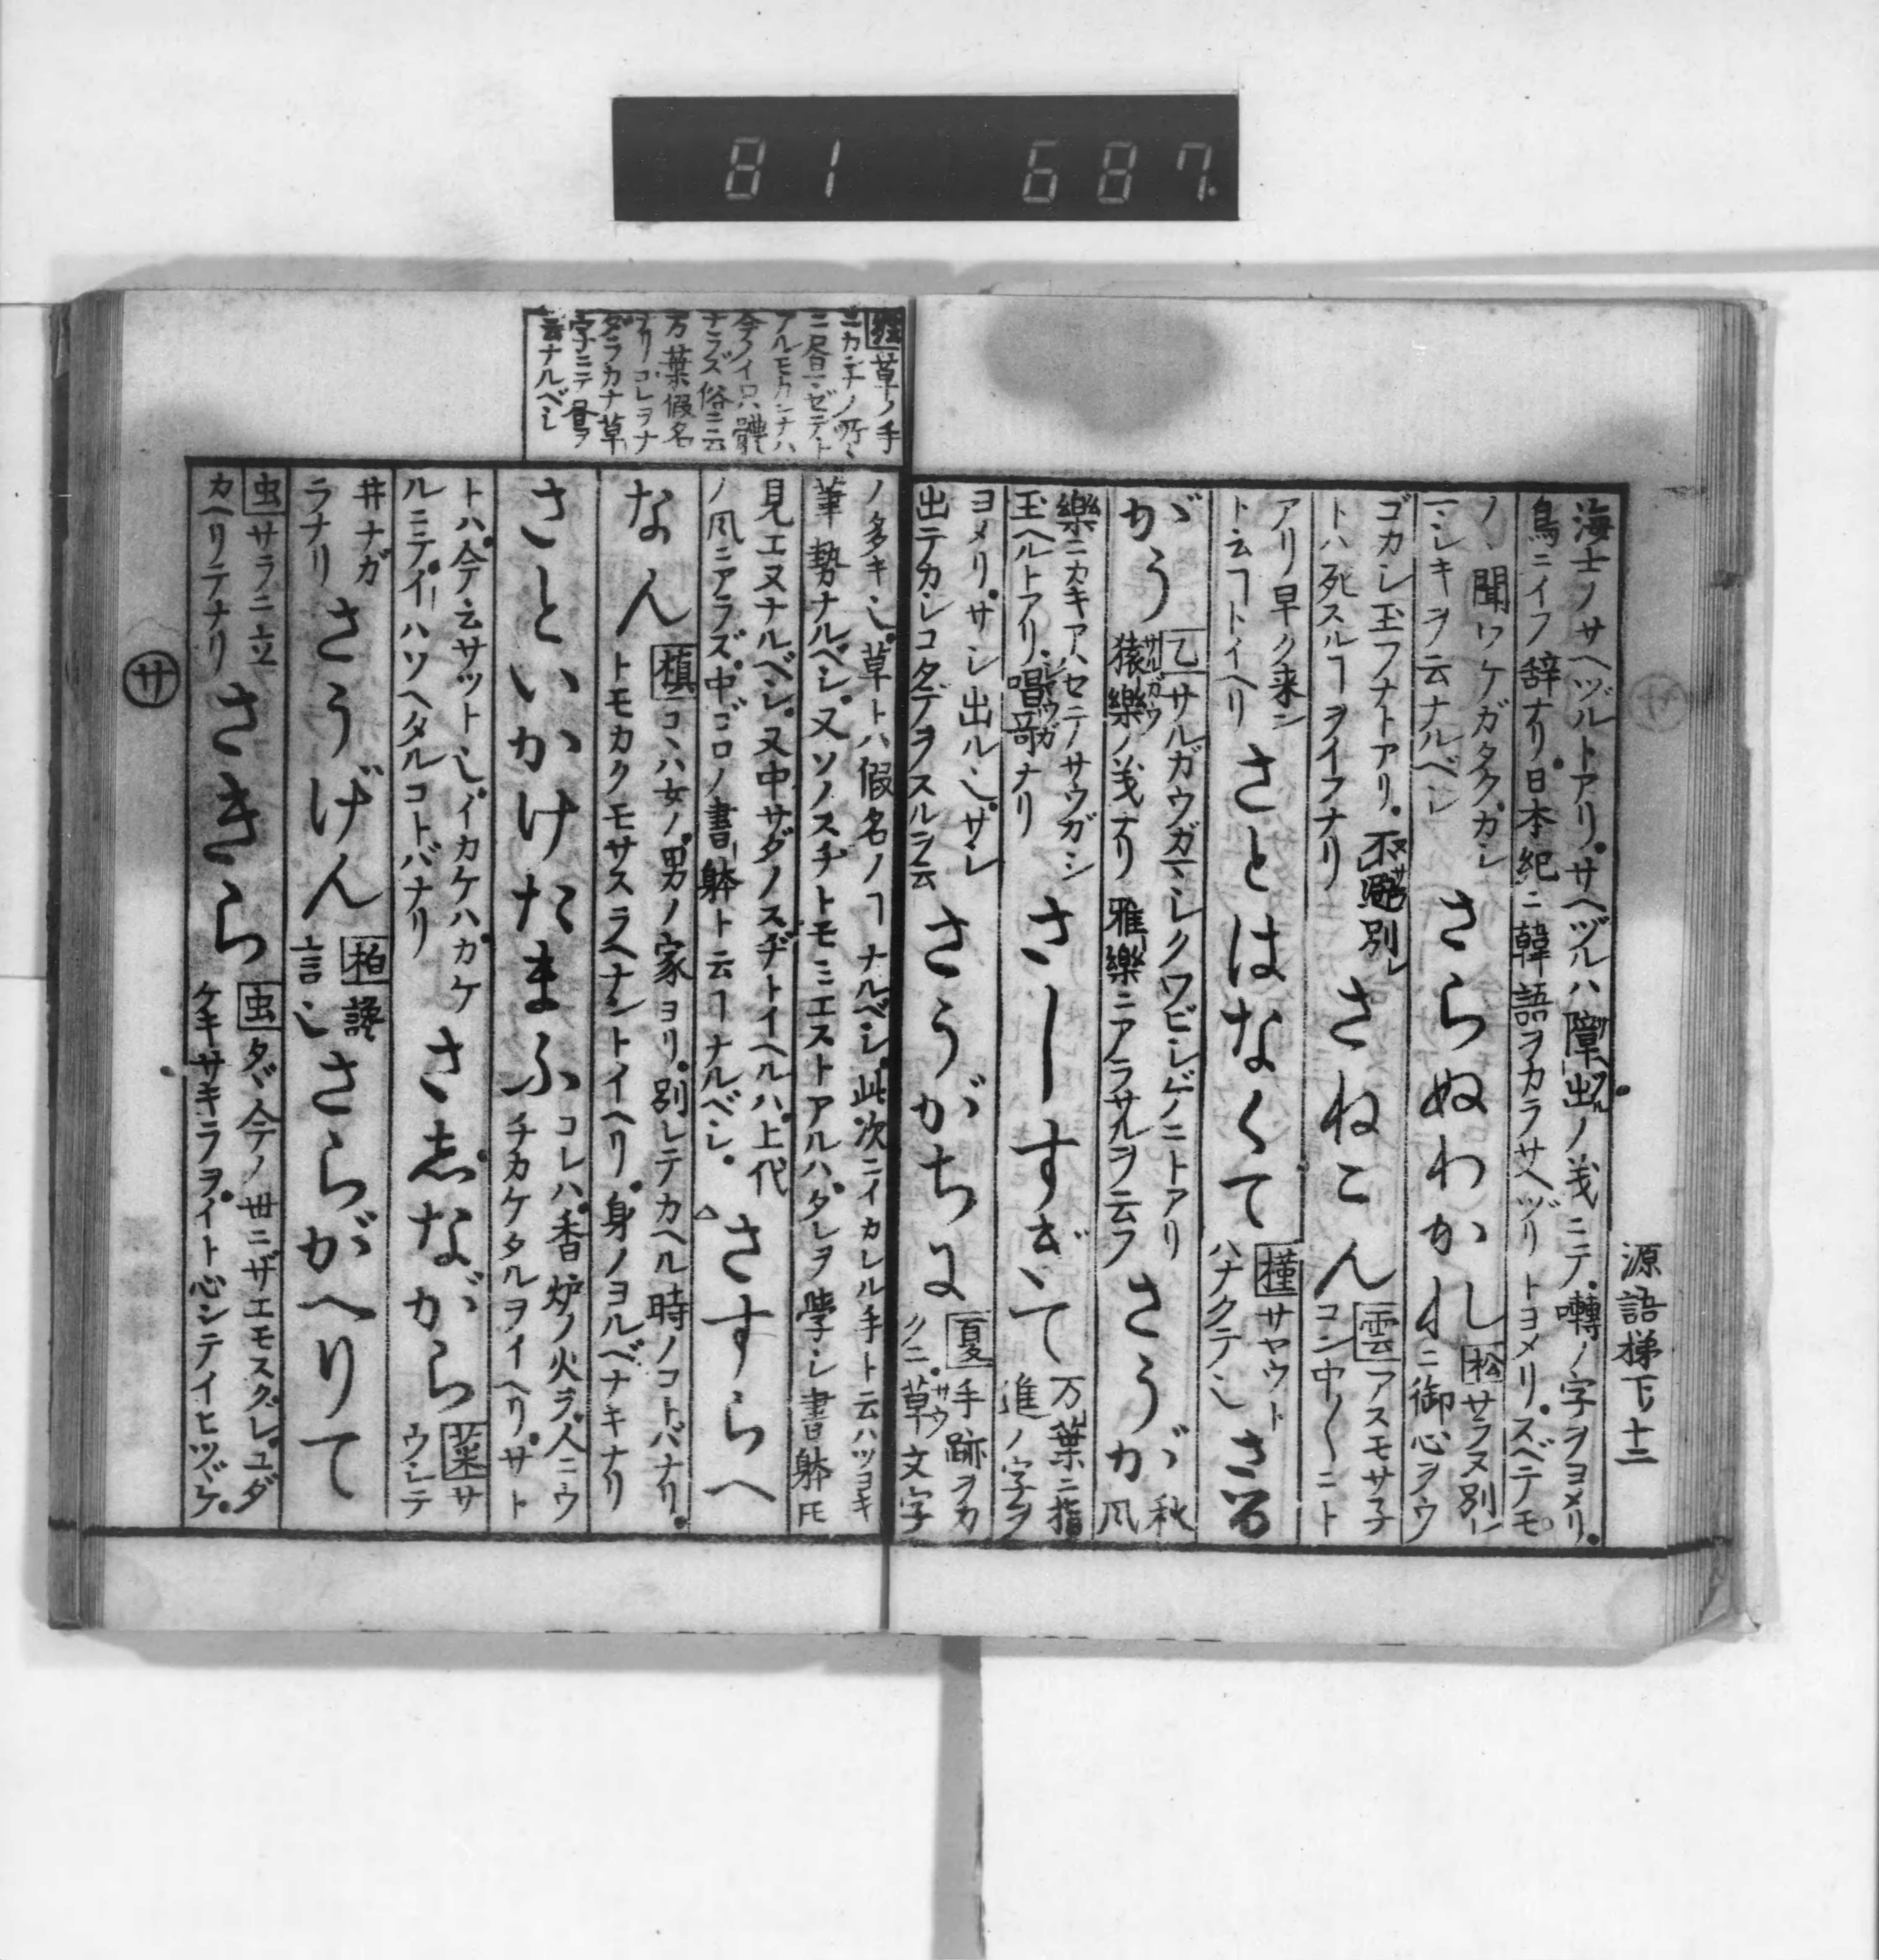 81 687
源語梯下ノ十二
海士ノサヘヅルトアリ。サヘヅルハ障出ノ義ニテ。囀ノ字ヲヨメリ。
鳥ニイフ辞ナリ。日本紀ニ韓語ヲカラサヘヅリトヨメリ。スベテモ
ノヽ聞ワケガタクカシ
マシキヲ云ナルベシ
さらぬわかれ
松サラヌ別レ
ニ御心ヲウ
ゴカシ玉フナトアリ。不避別レ
トハ死スルヿヲイフナリ
さねこん
雲アスモサ子
コン中〱ニト
アリ早ク来ン
ト云ヿトイヘリ
さとはなくて
槿サヤウト
ハナクテ也
さる
がう
乙サルガウガマシクワビシゲノニトアリ
猿樂ノ義ナリ雅樂ニアラサルヲ云フ
さうが
秋
風
樂ニカキアハセテサウガシ
玉ヘルトアリ。唱謌ナリ
さしすぎて
万葉ニ指
進ノ字ヲ
ヨメリ。サシ出ル也。サシ
出テカシコダテヲスルヲ云
さうがちに
夏手跡ヲカ
クニ。草文字
草ノ手
万葉假名
云ナルベシ
ノ多キ也。草トハ假名ノヿナルベシ。此次ニイカレル手ト云ハツヨキ
筆勢ナルベシ。又ソノスヂトモミエストアルハ。タレヲ學シ書躰𪜈
見エヌナルベシ。又中サダノスヂトイヘルハ。上代
ノ風ニアラズ。中ゴロノ書躰ト云ヿナルベシ。
さすらへ
なん
槙コヽハ女ノ。男ノ家ヨリ。別レテカヘル時ノコトバナリ。
トモカクモサスラヘナントイヘリ。身ノヨルベナキナリ
さといかけたまふ
コレハ。香炉ノ火ヲ。人ニウ
チカケタルヲイヘリ。サト
トハ。今云サット也。イカケハカケ
ルニテ。イハソヘタルコトバナリ
さしながら
菜サ
ウシテ
井ナガ
ラナリ
さうげん
柏讒
言也
さらがへりて
虫サラニ立
カヘリテナリ
さきら
虫タヾ今ノ世ニザエモスグレ。ユダ
ケキサキラヲ。イト心シテイヒツヾケ。
サ